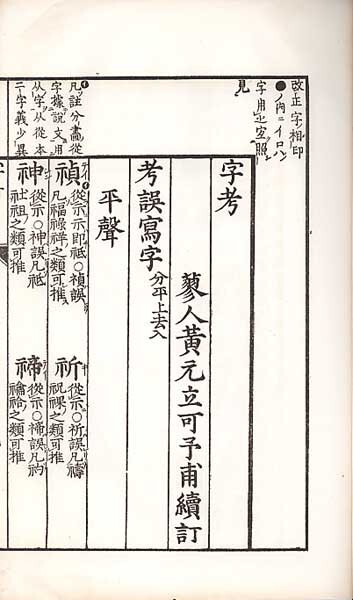 改正字相印
●ノ内ニイロハ
字用之空照
見
凡註分畫從
字據說文用
从字从從本
二字義少異
字考
蓼人黃元立可予甫續訂
考誤寫字 分平上去入
平聲
禎 從示示即祗○禎誤
凡福祿祥之類可推
祈 從示○祈誤凡禱
祝祼之類可推
神 從示○神誤凡祗
社祖之類可推
禘 從示○禘誤凡礿
禴祫之類可推